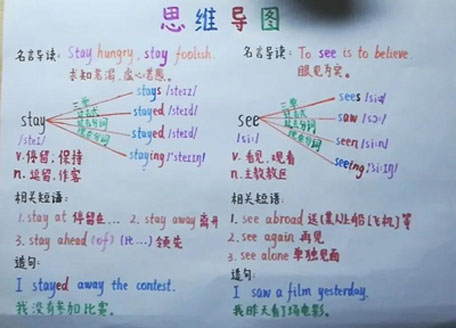 思维导图
名言导读: Stay hungry, stay foolish.
求知若渴，虚心若愚。
stay
/steɪ/
三单
过去式
过去分词
现在分词
stays /steɪz/
stayed /steɪd/
stayed /steɪd/
staying /'steɪɪŋ/
v. 停留；保持
n. 逗留，作客
相关短语:
1. stay at 停留在... 2. stay away 离开
3. stay ahead (of) (比...) 领先
造句:
I stayed away the contest.
我没有参加比赛。
名言导读: To see is to believe.
眼见为实。
see
/si:/
三单
过去式
过去分词
现在分词
sees /si:z/
saw /sɔ:/
seen /si:n/
seeing /'si:ɪŋ/
v. 看见，观看
n. 主教教区
相关短语:
1. see abroad 送[某人]上船[飞机]等
2. see again 再见
3. see alone 单独见面
造句:
I saw a film yesterday.
我昨天看了场电影。